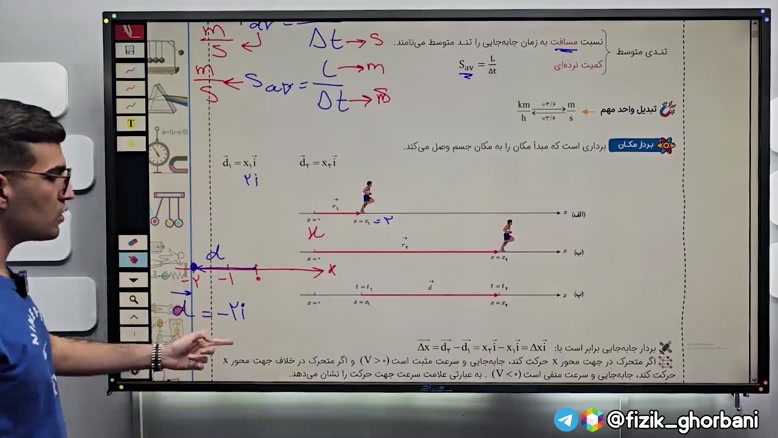 m/s
Δt → s
m/s ← Sav = L/Δt → m
→ s
تندی متوسط
نسبت مسافت به زمان جابه‌جایی را تند متوسط می‌نامند.
کمیت نرده‌ای
Sav = L/Δt
تبدیل واحد مهم
km/h ×۳/۶ ÷۳/۶ m/s
بردار مکان
برداری است که مبدأ مکان را به مکان جسم وصل می‌کند.
d₁ = x₁i
d₂ = x₂i
۲i
(الف)
x = ۰
x = x₁ = ۲
x
(ب)
x = ۰
x = x₂
x
d
-۲ -۱ ۰
x
d = -۲i
t = t₁
t = t₂
x = ۰
x = x₁
d
x = x₂
x
بردار جابه‌جایی برابر است با: Δx = d₂ − d₁ = x₂i − x₁i = Δxi
اگر متحرک در جهت محور x حرکت کند، جابه‌جایی و سرعت مثبت است (V > ۰) و اگر متحرک در خلاف جهت محور x
حرکت کند، جابه‌جایی و سرعت منفی است (V < ۰) . به عبارتی علامت سرعت جهت حرکت را نشان می‌دهد.
@fizik_ghorbani